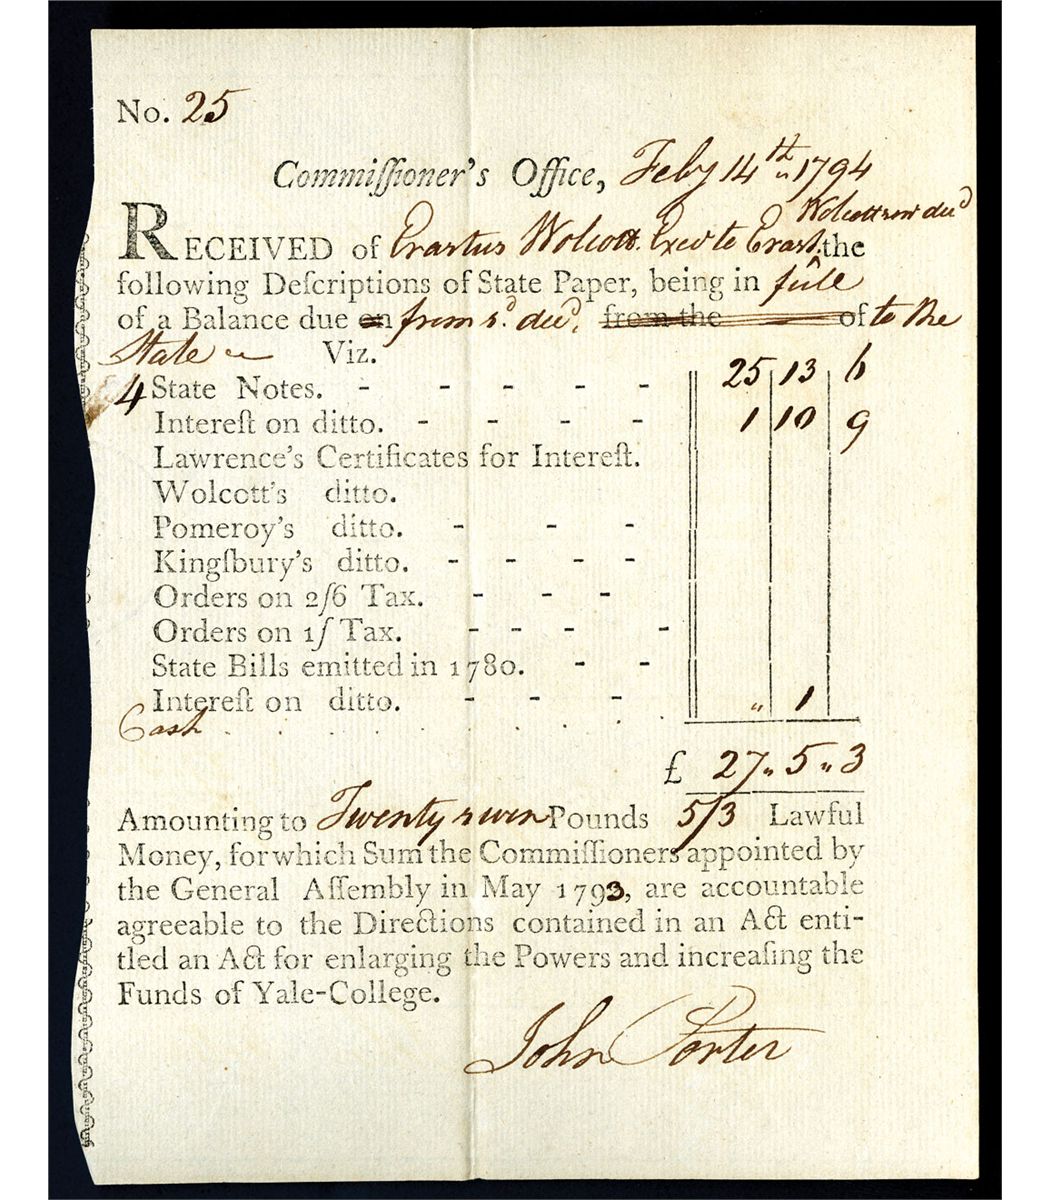 No. 25
Commiſſioner's Office, Feby 14th „ 1794
Wolcott decd
RECEIVED of Erastus Wolcott Exec to Erast. the
following Deſcriptions of State Paper, being in full
of a Balance due on from sd. decd. from the of to the
State Viz.
4 State Notes. - - - - - 25 13 6
Intereſt on ditto. - - - - 1 10 9
Lawrence's Certificates for Intereſt.
Wolcott's ditto.
Pomeroy's ditto. - - -
Kingſbury's ditto. - - - -
Orders on 2ſ6 Tax. - - -
Orders on 1ſ Tax. - - - -
State Bills emitted in 1780. - -
Intereſt on ditto. - - -
Cash . . . . . . „ 1
£ 27 „ 5 „ 3
Amounting to Twenty seven Pounds 5/3 Lawful
Money, for which Sum the Commiſſioners appointed by
the General Aſſembly in May 1793, are accountable
agreeable to the Directions contained in an Act enti-
tled an Act for enlarging the Powers and increaſing the
Funds of Yale-College.
John Porter